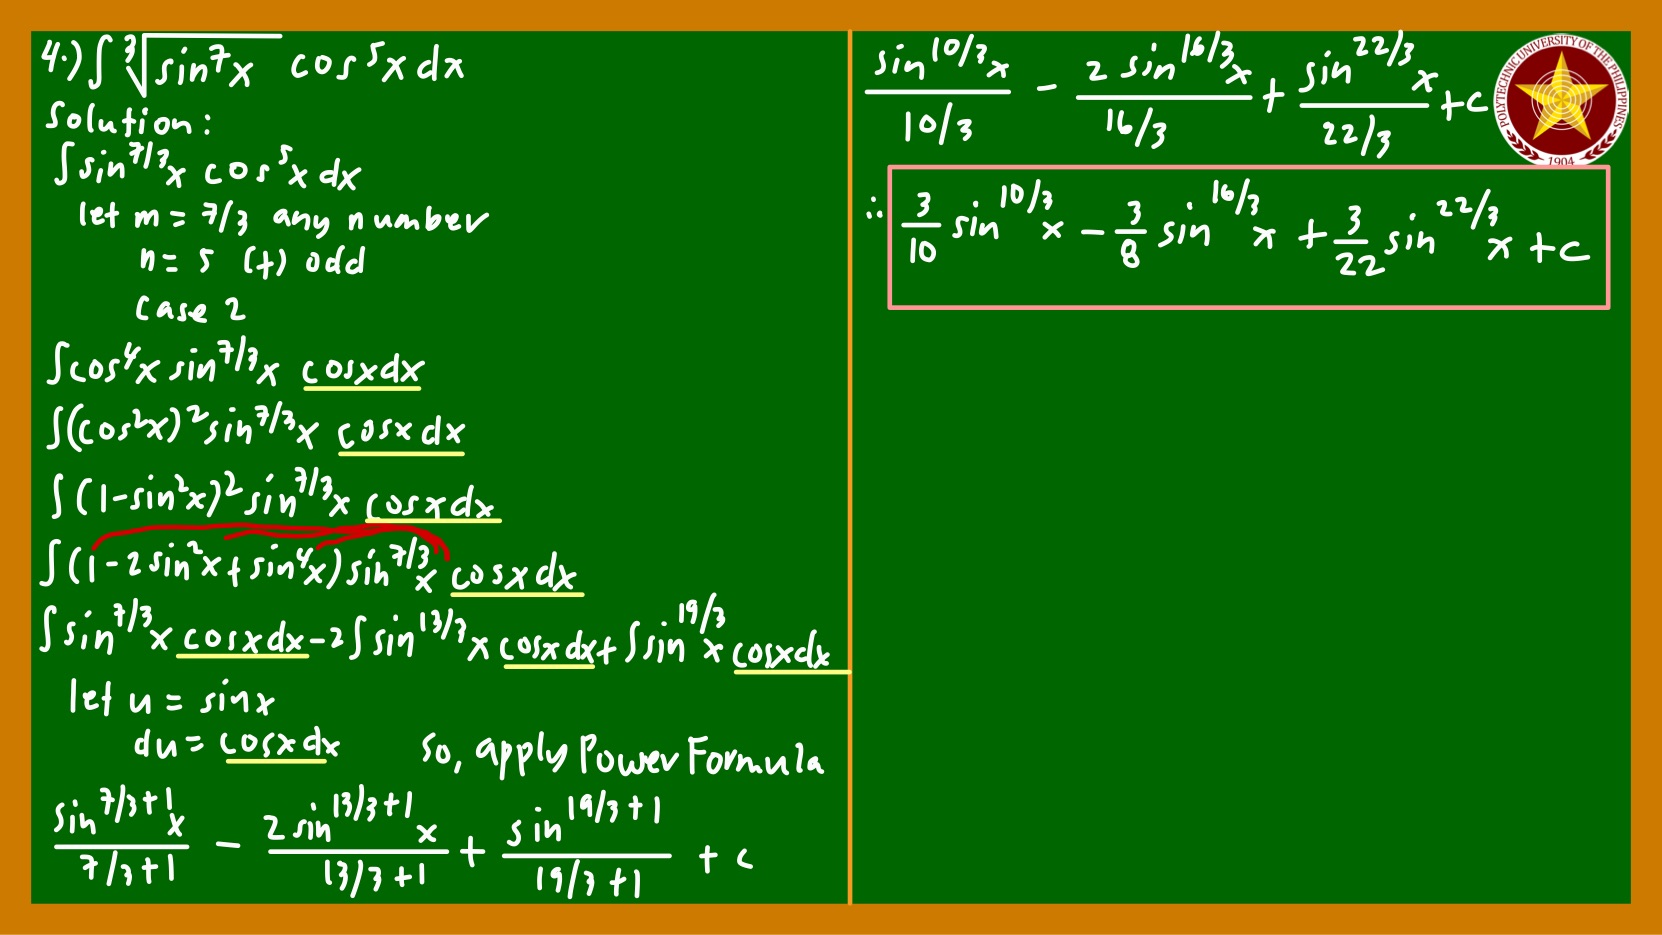 4.) ∫ ∛(sin⁷x) cos⁵x dx
Solution:
∫ sin^7/3 x cos⁵x dx
let m = 7/3 any number
n = 5 (+) odd
case 2
∫cos⁴x sin^7/3 x cosxdx
∫(cos²x)² sin^7/3 x cosx dx
∫(1-sin²x)² sin^7/3 x cosxdx
∫(1-2sin²x+sin⁴x) sin^7/3 x cosxdx
∫sin^7/3 x cosxdx - 2∫sin^13/3 x cosxdx + ∫sin^19/3 x cosxdx
let u = sinx
du = cosxdx so, apply Power Formula
(sin^7/3+1 x)/(7/3+1) - (2 sin^13/3+1 x)/(13/3+1) + (sin^19/3+1)/(19/3+1) + c
(sin^10/3 x)/(10/3) - (2 sin^16/3 x)/(16/3) + (sin^22/3 x)/(22/3) + c
∴ 3/10 sin^10/3 x - 3/8 sin^16/3 x + 3/22 sin^22/3 x + c
POLYTECHNIC UNIVERSITY OF THE PHILIPPINES
1904